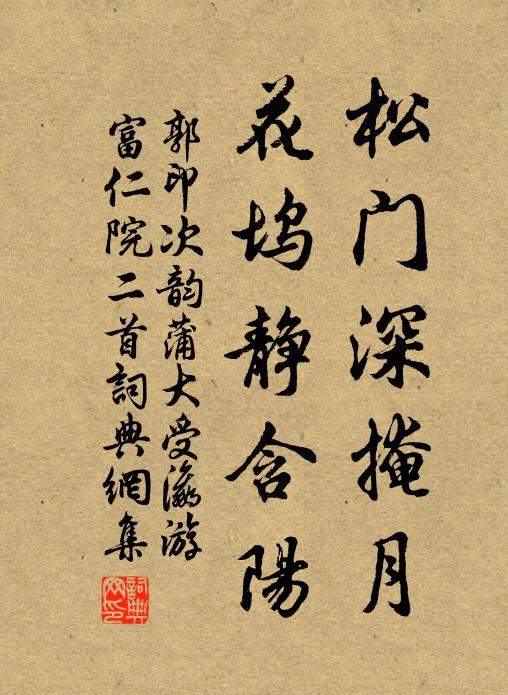 松门深掩月
花坞静含陽
郭印次韵蒲大受瀛游
富仁院二首詞典網集
詞典网印